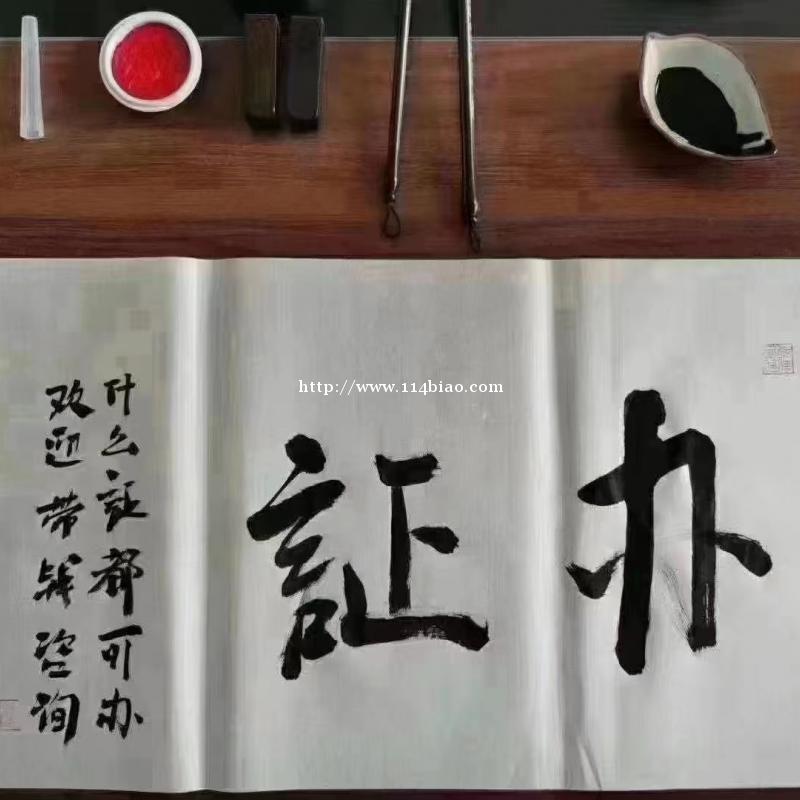 http://www.114biao.com
办証
什么証都可办
欢迎带钱咨询